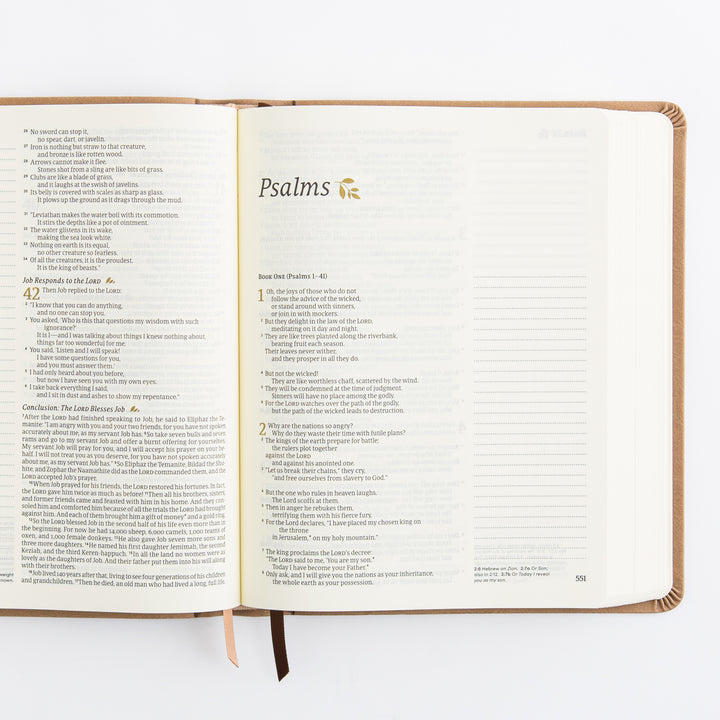 26 No sword can stop it,
no spear, dart, or javelin.
27 Iron is nothing but straw to that creature,
and bronze is like rotten wood.
28 Arrows cannot make it flee.
Stones shot from a sling are like bits of grass.
29 Clubs are like a blade of grass,
and it laughs at the swish of javelins.
30 Its belly is covered with scales as sharp as glass.
It plows up the ground as it drags through the mud.
31 "Leviathan makes the water boil with its commotion.
It stirs the depths like a pot of ointment.
32 The water glistens in its wake,
making the sea look white.
33 Nothing on earth is its equal,
no other creature so fearless.
34 Of all the creatures, it is the proudest.
It is the king of beasts."
Job Responds to the LORD
42 Then Job replied to the LORD:
2 "I know that you can do anything,
and no one can stop you.
3 You asked, 'Who is this that questions my wisdom with such
ignorance?'
It is I—and I was talking about things I knew nothing about,
things far too wonderful for me.
4 You said, 'Listen and I will speak!
I have some questions for you,
and you must answer them.'
5 I had only heard about you before,
but now I have seen you with my own eyes.
6 I take back everything I said,
and I sit in dust and ashes to show my repentance."
Conclusion: The LORD Blesses Job
7 After the LORD had finished speaking to Job, he said to Eliphaz the Te-
manite: "I am angry with you and your two friends, for you have not spoken
accurately about me, as my servant Job has. 8 So take seven bulls and seven
rams and go to my servant Job and offer a burnt offering for yourselves.
My servant Job will pray for you, and I will accept his prayer on your be-
half. I will not treat you as you deserve, for you have not spoken accurately
about me, as my servant Job has." 9 So Eliphaz the Temanite, Bildad the Shu-
hite, and Zophar the Naamathite did as the LORD commanded them, and the
LORD accepted Job's prayer.
10 When Job prayed for his friends, the LORD restored his fortunes. In fact,
the LORD gave him twice as much as before! 11 Then all his brothers, sisters,
and former friends came and feasted with him in his home. And they con-
soled him and comforted him because of all the trials the LORD had brought
against him. And each of them brought him a gift of money* and a gold ring.
12 So the LORD blessed Job in the second half of his life even more than in
the beginning. For now he had 14,000 sheep, 6,000 camels, 1,000 teams of
oxen, and 1,000 female donkeys. 13 He also gave Job seven more sons and
three more daughters. 14 He named his first daughter Jemimah, the second
Keziah, and the third Keren-happuch. 15 In all the land no women were as
lovely as the daughters of Job. And their father put them into his will along
with their brothers.
16 Job lived 140 years after that, living to see four generations of his children
and grandchildren. 17 Then he died, an old man who had lived a long, full life.
weight
Psalms
BOOK ONE (Psalms 1–41)
1 Oh, the joys of those who do not
follow the advice of the wicked,
or stand around with sinners,
or join in with mockers.
2 But they delight in the law of the LORD,
meditating on it day and night.
3 They are like trees planted along the riverbank,
bearing fruit each season.
Their leaves never wither,
and they prosper in all they do.
4 But not the wicked!
They are like worthless chaff, scattered by the wind.
5 They will be condemned at the time of judgment.
Sinners will have no place among the godly.
6 For the LORD watches over the path of the godly,
but the path of the wicked leads to destruction.
2 Why are the nations so angry?
Why do they waste their time with futile plans?
2 The kings of the earth prepare for battle;
the rulers plot together
against the LORD
and against his anointed one.
3 "Let us break their chains," they cry,
"and free ourselves from slavery to God."
4 But the one who rules in heaven laughs.
The Lord scoffs at them.
5 Then in anger he rebukes them,
terrifying them with his fierce fury.
6 For the Lord declares, "I have placed my chosen king on
the throne
in Jerusalem,* on my holy mountain."
7 The king proclaims the LORD's decree:
"The LORD said to me, 'You are my son.*
Today I have become your Father.*
8 Only ask, and I will give you the nations as your inheritance,
the whole earth as your possession.
2:6 Hebrew on Zion. 2:7a Or Son;
also in 2:12. 2:7b Or Today I reveal
you as my son.
551